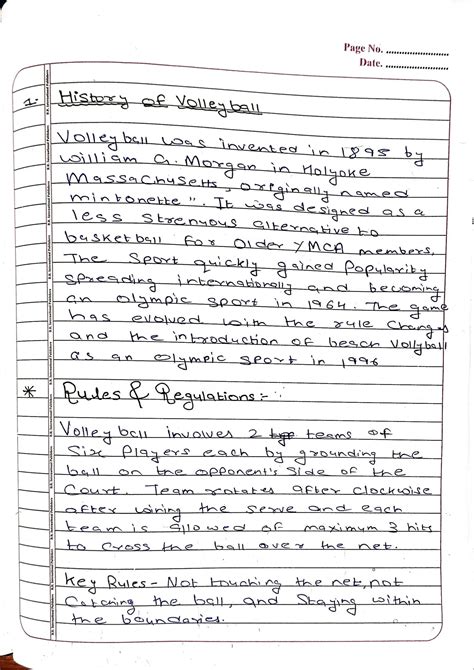 Page No. ........................
Date. ........................
1. History of Volleyball
Volleyball was invented in 1895 by
William G. Morgan in Holyoke
Massachusetts, originally named
mintonette". It was designed as a
less strenuous alternative to
basketball for Older YMCA members.
The Sport quickly gained Popularity
Spreading internationally and becoming
an olympic sport in 1964. The game
has evolved with the rule changes
and the introduction of beach Vollyball
as an olympic sport in 1996
* Rules & Regulations:-
Volleyball involves 2 teams of
Six Players each by grounding the
ball on the opponent's Side of the
Court. Team rotates after clockwise
after wining the serve and each
team is allowed of maximum 3 hits
to cross the ball over the net.
Key Rules - Not touching the net, not
Catching the ball, and Staying within
the boundaries.